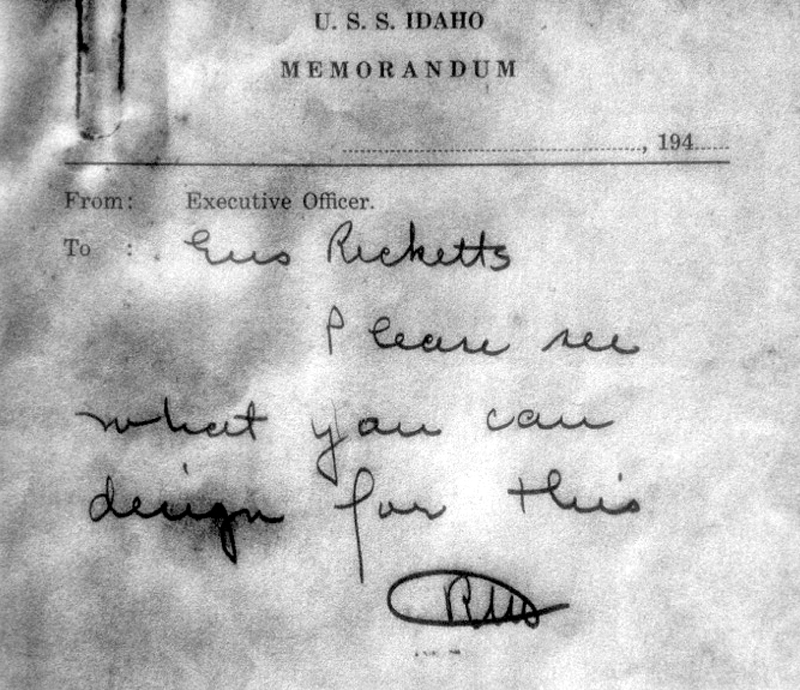 U. S. S. IDAHO
MEMORANDUM
......................................................, 194......
From: Executive Officer.
To : Gus Ricketts
Please see
what you can
design for this